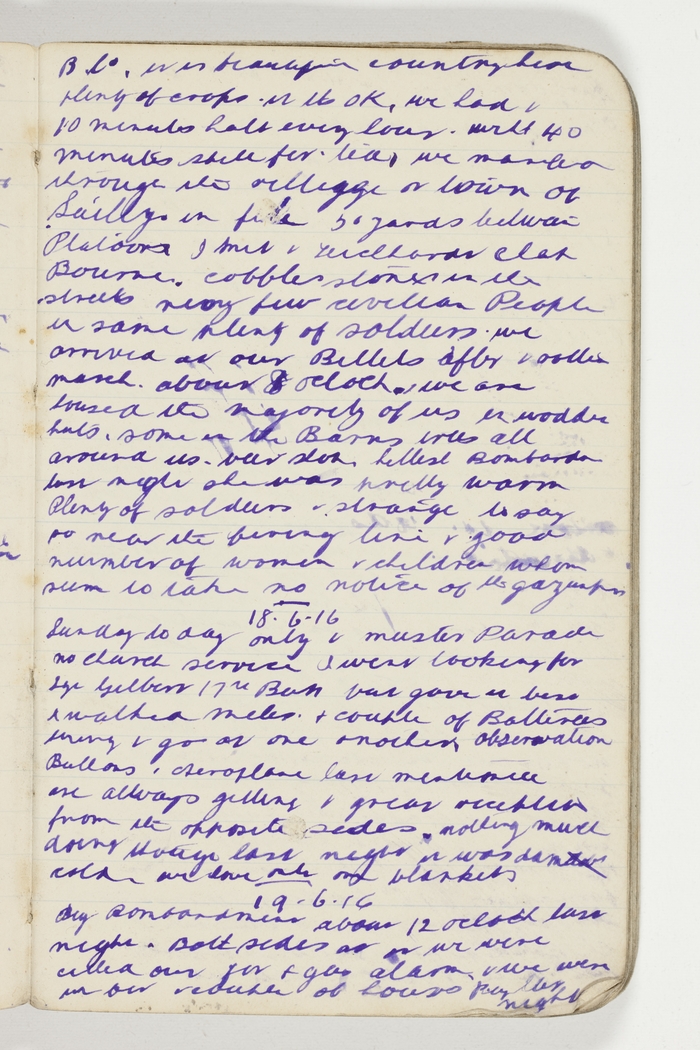 B.C°. it is beautiful country here
plenty of crops. it is OK, we had a
10 minutes halt every hour. with 40
minutes spell for tea, we marched
through the village or town of
Sailly in file 50 yards between
Platoons I met a Richards Clah
Bourne. cobbles stones in the
streets very few civilian People
in same plenty of soldiers. we
arrived at our Billets after a
march. about 8 oclock, we are
housed the majority of us in wodden
huts. some in the Barns trees all
around us. Bombardn
last night she was pretty warm
Plenty of soldiers & strange to say
so near the firing line a good
number of women & children whom
seem to take no notice of the
18.6.16
Sunday to day only a muster Parade
no church service I went looking for
Sgt Gilbert 17th Batt but gave it best
I walked miles. a couple of Batteries
having a go at one another, observation
Ballons & Aeroplane last mentioned
are allways getting a great reception
from the opposite sides. nothing much
doing though last night it was damn
cold we have only one blankets
19.6.16
Big Bombardment about 12 oclock last
night. Both sides at it we were
called out for a gas alarm, & we were
in our of hours Buy last
night